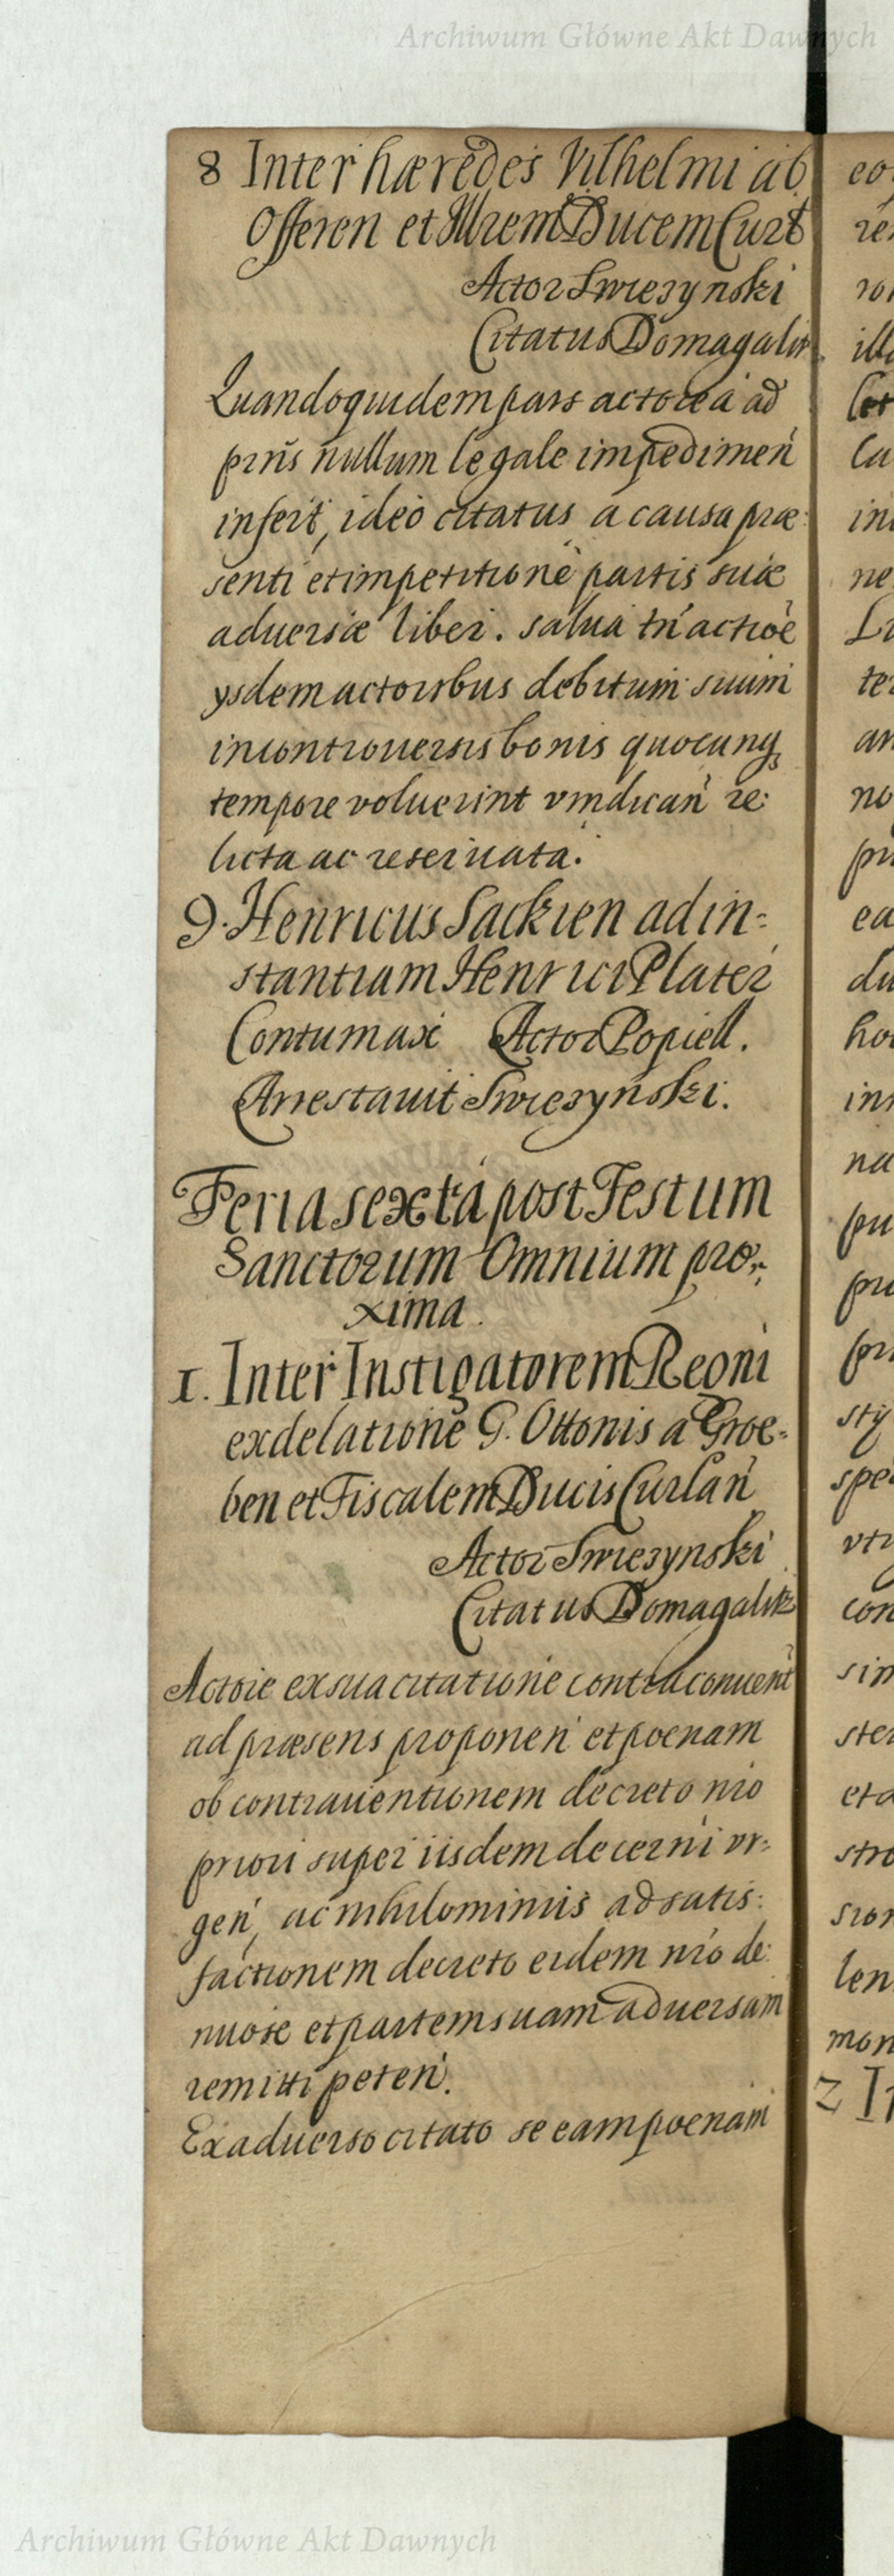 Archiwum Główne Akt Dawnych
8 Inter hæredes Vilhelmi ab
Offeren et Illrem Ducem Curl
Actor Swiezynski
Citatus Domagalit
Quandoquidem pars actorea ad
prñs nullum legale impedimen
infert, ideo citatus a causa præ:
senti et impetitione partis suæ
aduersæ liber. salua tñ actioe
ysdem actoribus debitum suum
incontrouersis bonis quocunq
tempore voluerint vindican re:
licta ac reseruata.
9. Henricus Sackien ad in=
stantiam Henrici Plater
Contumax Actor Popiell.
Arrestauit Swiezynski.
Feria sexta post Festum
Sanctorum Omnium pro,,
xima.
1. Inter Instigatorem Regni
ex delatione G. Ottonis a Groe=
ben et Fiscalem Ducis Curlan
Actor Swiezynski
Citatus Domagalitz
Actore ex sua citatione contraconuent
ad præsens proponen et poenam
ob contrauentionem decreto nro
priori super iisdem decerni vr=
gen, ac nihilominus ad satis:
factionem decreto eidem nro de:
nuo se et partem suam aduersam
remitti peten.
Ex aduerso citato se eam poenam
Archiwum Główne Akt Dawnych